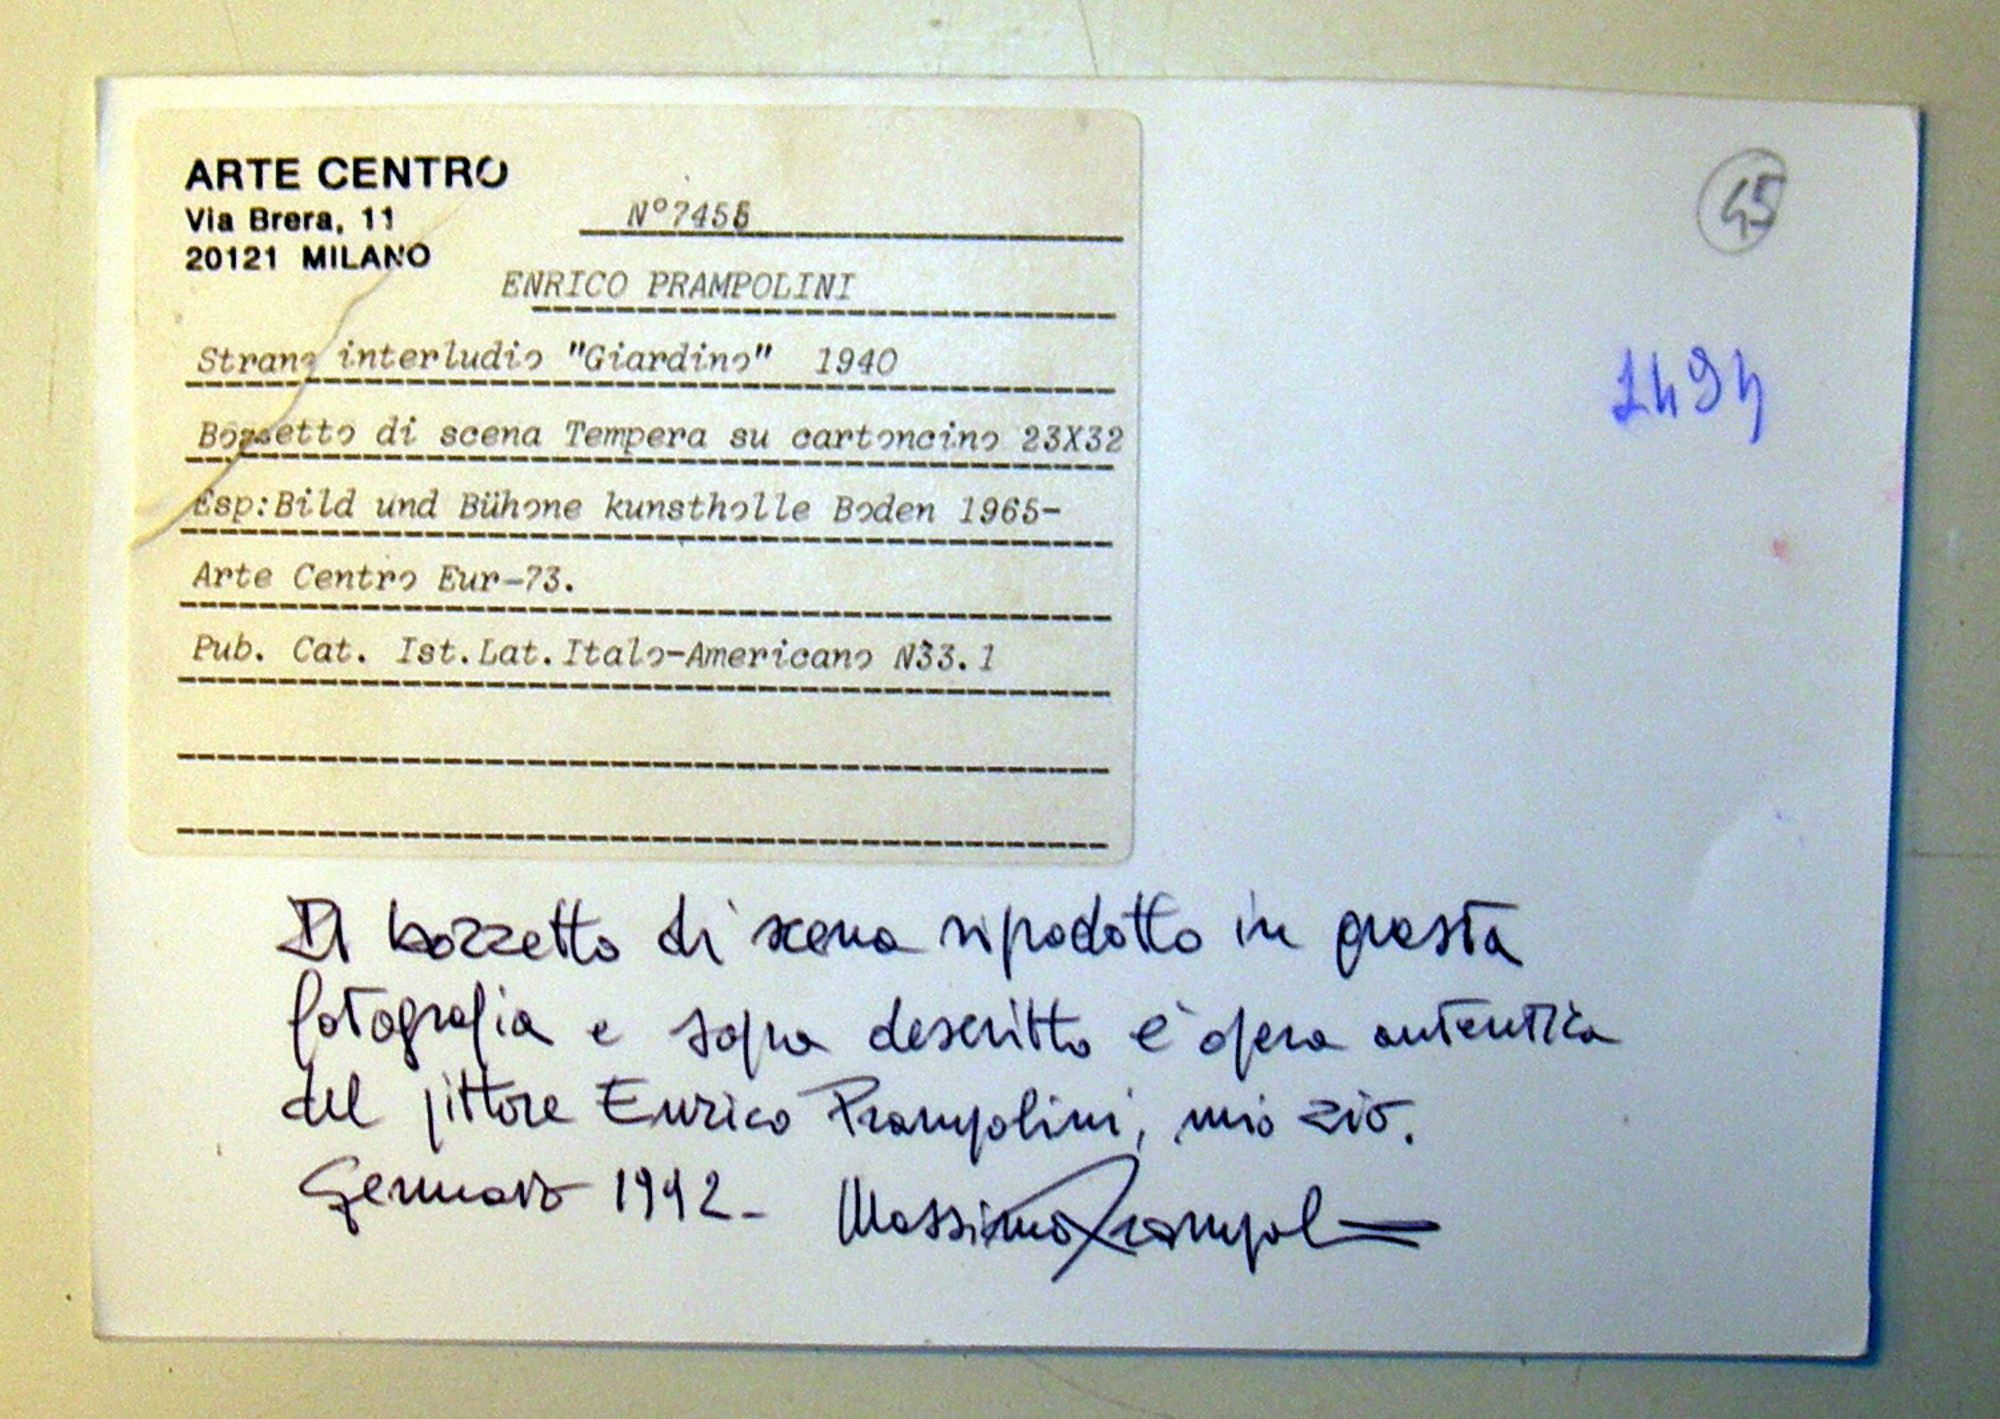 ARTE CENTRO
Via Brera, 11
20121 MILANO
N°7455
ENRICO PRAMPOLINI
Strano interludio "Giardino" 1940
Bozzetto di scena Tempera su cartoncino 23X32
Esp:Bild und Bühone kunstholle Boden 1965-
Arte Centro Eur-73.
Pub. Cat. Ist.Lat.Italo-Americano N33.1
45
1494
Il bozzetto di scena ripodotto in questa
fotografia e sopra descritto è opera autentica
del pittore Enrico Prampolini, mio zio.
Gennaio 1992- Massimo Prampolini